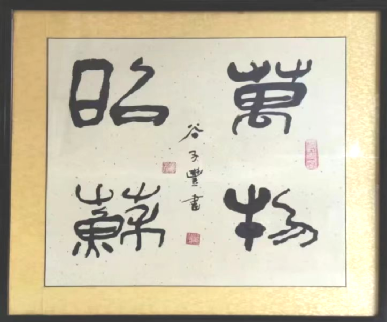 萬物
昭蘇
谷子豐書